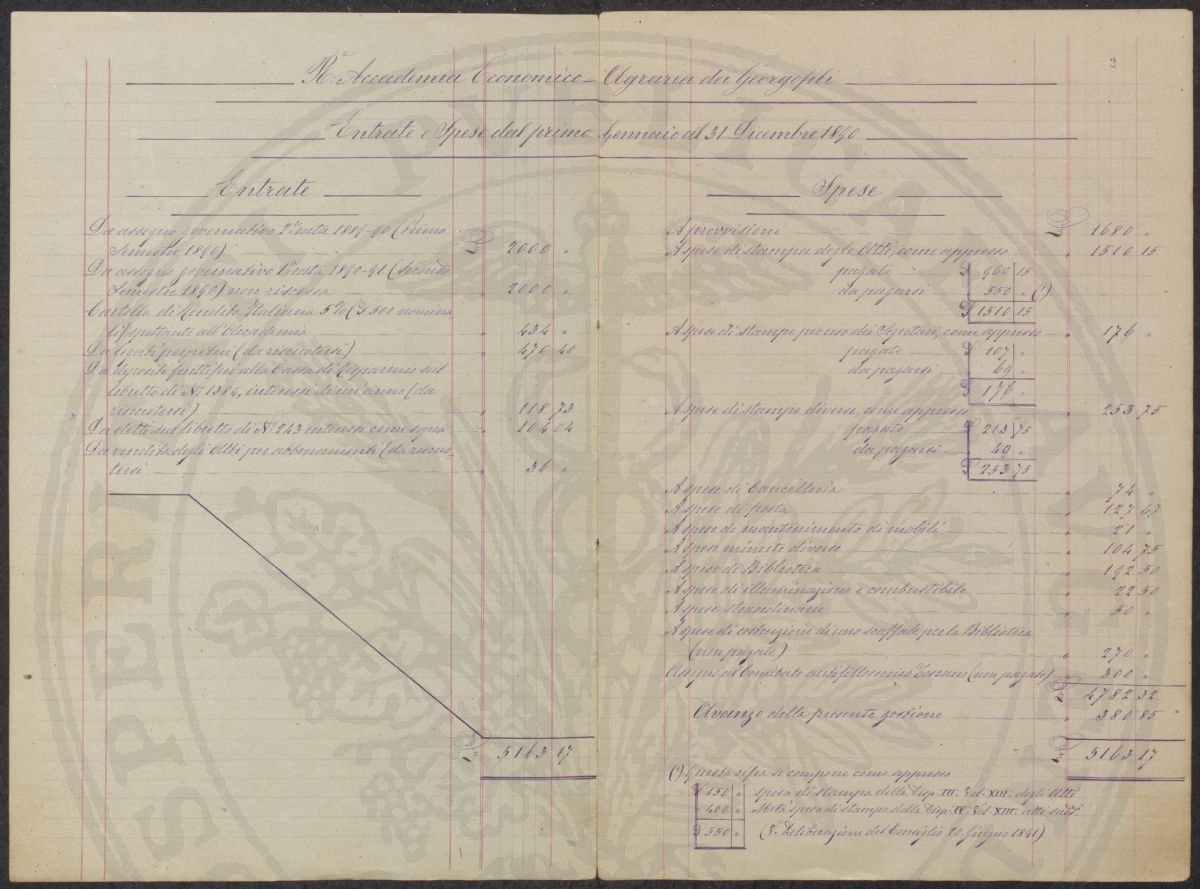 2
Rª Accademia Economico-Agraria dei Georgofili
Entrate e Spese dal primo Gennaio al 31 Dicembre 1890
Entrate
Da assegno governativo 2ª rata 1889-90 (Primo
Semestre 1890) £ 2000 "
Da assegno governativo 1ª rata 1890-91 (Secondo
Semestre 1890) non riscossa " 2000 "
Cartella di Rendita Italiana 5% (£ 500 nomina
li) spettante all'Accademia " 434 "
Da legati perpetui (da riscuotersi) " 470 40
Da depositi fruttiferi alla Cassa di Risparmio sul
libretto di Nº 1384, interessi di un'anno (da
riscuotersi) " 118 73
Da detti sul libretto di Nº 243 interessi come sopra " 104 04
Da vendita degli Atti per abbonamenti (da riscuo-
tersi " 36 "
£ 5163 17
Spese
A provvisioni £ 1680 "
A spese di stampa degli Atti, come appresso " 1510 15
pagate £ 960 15
da pagarsi " 550 " (1)
£ 1510 15
A spese di stampe per uso dei Segretari, come appresso " 176 "
pagate £ 107 "
da pagarsi " 69 "
£ 176 "
A spese di stampe diverse, come appresso " 253 75
pagate £ 213 75
da pagarsi " 40 "
£ 253 75
A spese di Cancelleria " 74 "
A spese di posta " 127 67
A spese di mantenimento di mobili " 21 "
A spese minute diverse " 104 75
A spese di Biblioteca " 192 50
A spese di illuminazione e combustibile " 22 50
A spese straordinarie " 50 "
A spese di costruzione di uno scaffale per la Biblioteca
(non pagate) " 270 "
Assegno al Comitato antifillosserico Toscano (non pagato) " 300 "
£ 4782 32
Avanzo della presente gestione " 380 85
£ 5163 17
(1) Questa cifra si compone come appresso
£ 150 " spesa di stampa della Disp. III. Vol. XIII. degli Atti
" 400 " Metà spesa di stampa della Disp. IV. Vol. XIII. atti sudd.
£ 550 " (V. Deliberazione del Consiglio 20 Giugno 1891)